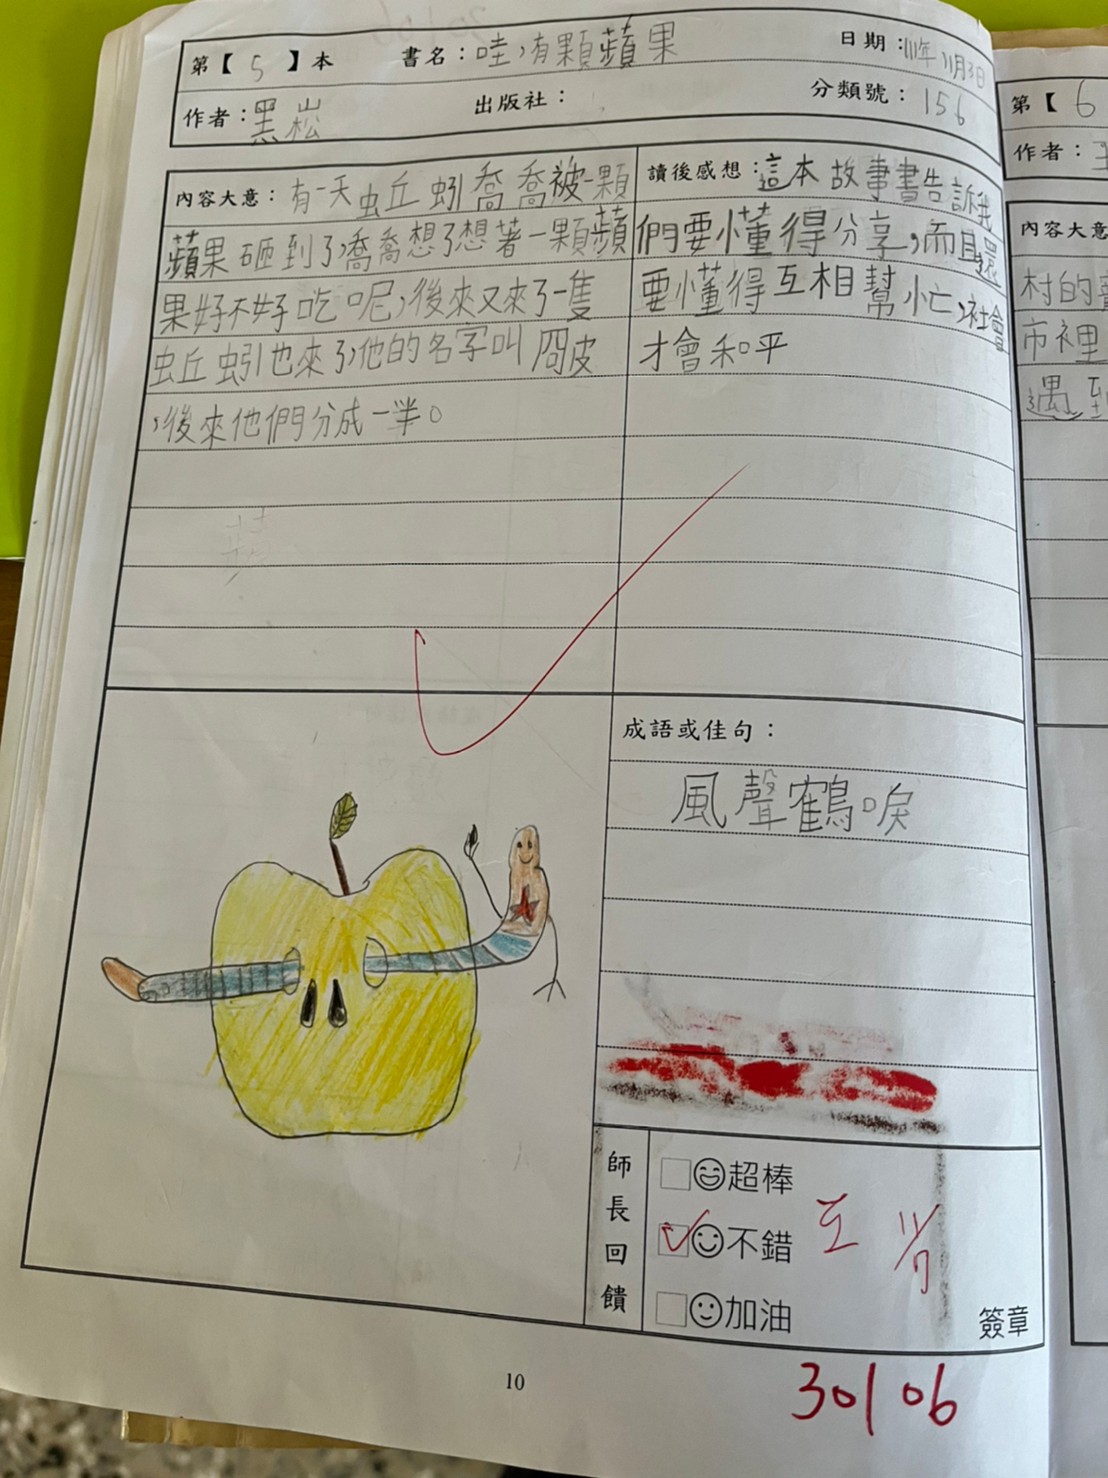 第【 5 】本 書名：哇，有顆蘋果 日期：111年11月3日
作者：黑崧 出版社： 分類號：156
內容大意：有一天虫丘蚓喬喬被一顆
蘋果砸到了，喬喬想了想著一顆蘋
果好不好吃呢，後來又來了一隻
虫丘蚓也來了，他的名字叫 皮
，後來他們分成一半。
讀後感想：這本故事書告訴我
們要懂得分享，而且還
要懂得互相幫忙，社會
才會和平
成語或佳句：
風聲鶴唳
師長回饋
超棒
不錯
加油
簽章
10
30106
第【 6
作者：王
內容大意
村的
市裡
遇到